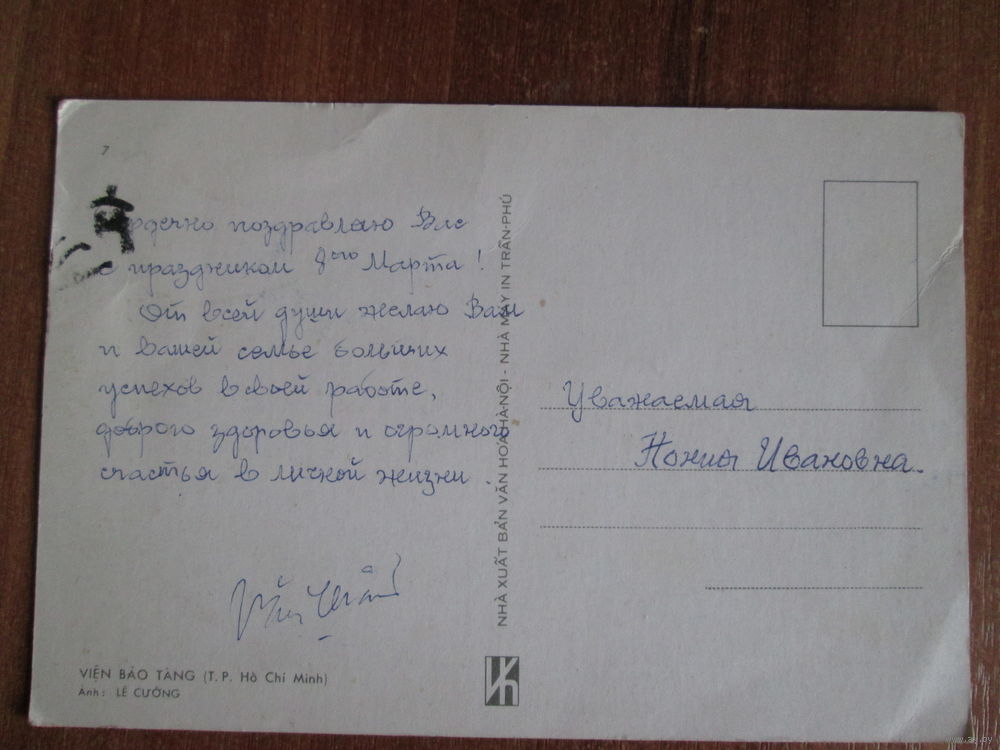 7
Сердечно поздравляю Вас
с праздником 8го Марта!
От всей души желаю Вам
и вашей семье больших
успехов в своей работе,
доброго здоровья и огромного
счастья в личной жизни.
VIỆN BẢO TÀNG (T.P. Hồ Chí Minh)
Ảnh: LÊ CƯỜNG
NHÀ XUẤT BẢN VĂN HOÁ HÀ-NỘI - NHÀ MÁY IN TRẦN-PHÚ
Уважаемая
Нонна Ивановна.